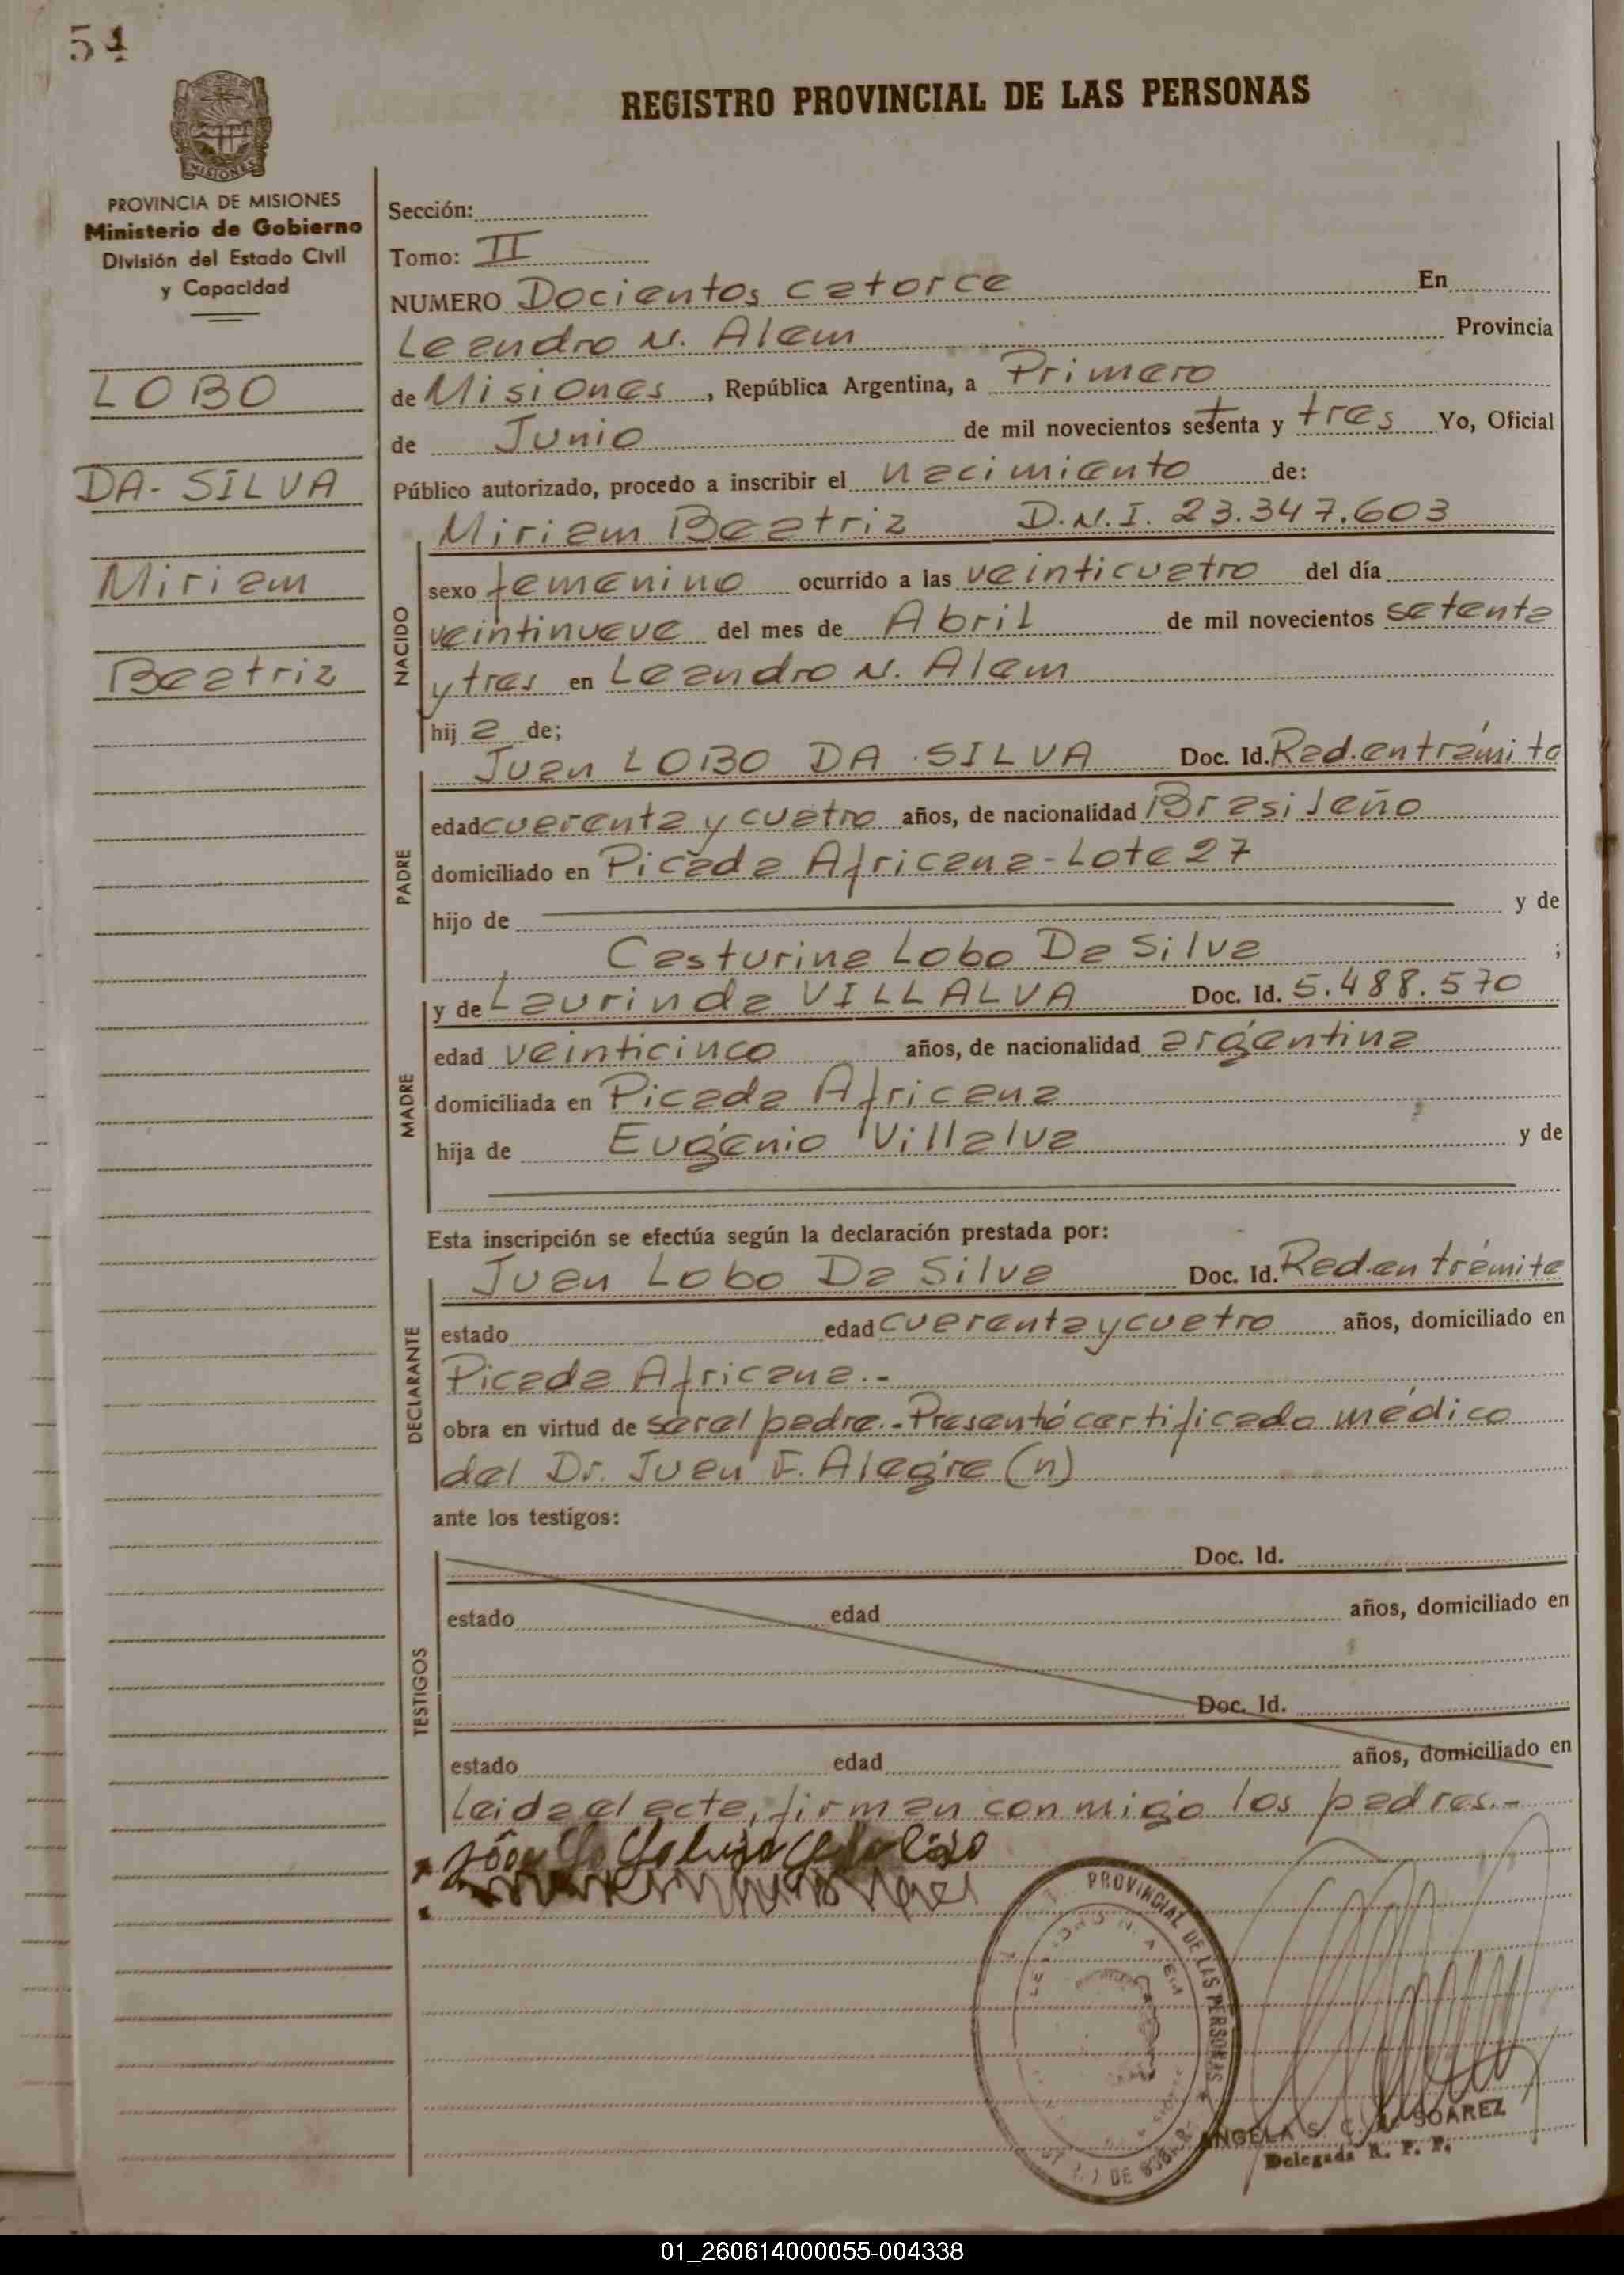 54
REGISTRO PROVINCIAL DE LAS PERSONAS
MISIONES
PROVINCIA DE MISIONES
Ministerio de Gobierno
División del Estado Civil
y Capacidad
LOBO
DA-SILVA
Miriam
Beatriz
Sección:
Tomo: II
NUMERO Docientos catorce En
Leandro N. Alem Provincia
de Misiones, República Argentina, a Primero
de Junio de mil novecientos setenta y tres Yo, Oficial
Público autorizado, procedo a inscribir el nacimiento de:
NACIDO
Miriam Beatriz D.N.I. 23.347.603
sexo femenino ocurrido a las veinticuatro del día
veintinueve del mes de Abril de mil novecientos setenta
y tres en Leandro N. Alem
hija de;
PADRE
Juan LOBO DA SILVA Doc. Id. Rad. en trámite
edad cuarenta y cuatro años, de nacionalidad Brasileño
domiciliado en Picada Africana - Lote 27
hijo de y de
Casturina Lobo Da Silva ;
MADRE
y de Laurinda VILLALVA Doc. Id. 5.488.570
edad veinticinco años, de nacionalidad argentina
domiciliada en Picada Africana
hija de Eugenio Villalva y de
Esta inscripción se efectúa según la declaración prestada por:
DECLARANTE
Juan Lobo Da Silva Doc. Id. Rad. en trámite
estado edad cuarenta y cuatro años, domiciliado en
Picada Africana.-
obra en virtud de ser el padre.- Presentó certificado médico
del Dr. Juan F. Alegre (n)
ante los testigos:
TESTIGOS
Doc. Id.
estado edad años, domiciliado en
Doc. Id.
estado edad años, domiciliado en
Leida el acta, firman conmigo los padres.-
PROVINCIAL DE LAS PERSONAS
ANGELA S. C. SOAREZ
Delegada R. P. P.
01_260614000055-004338